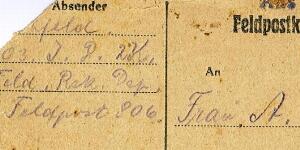 Absender
feld
J. R. 27/1.
Feld. Rek. Dep.
Feldpost 806.
Feldpostk
An
Frau A.